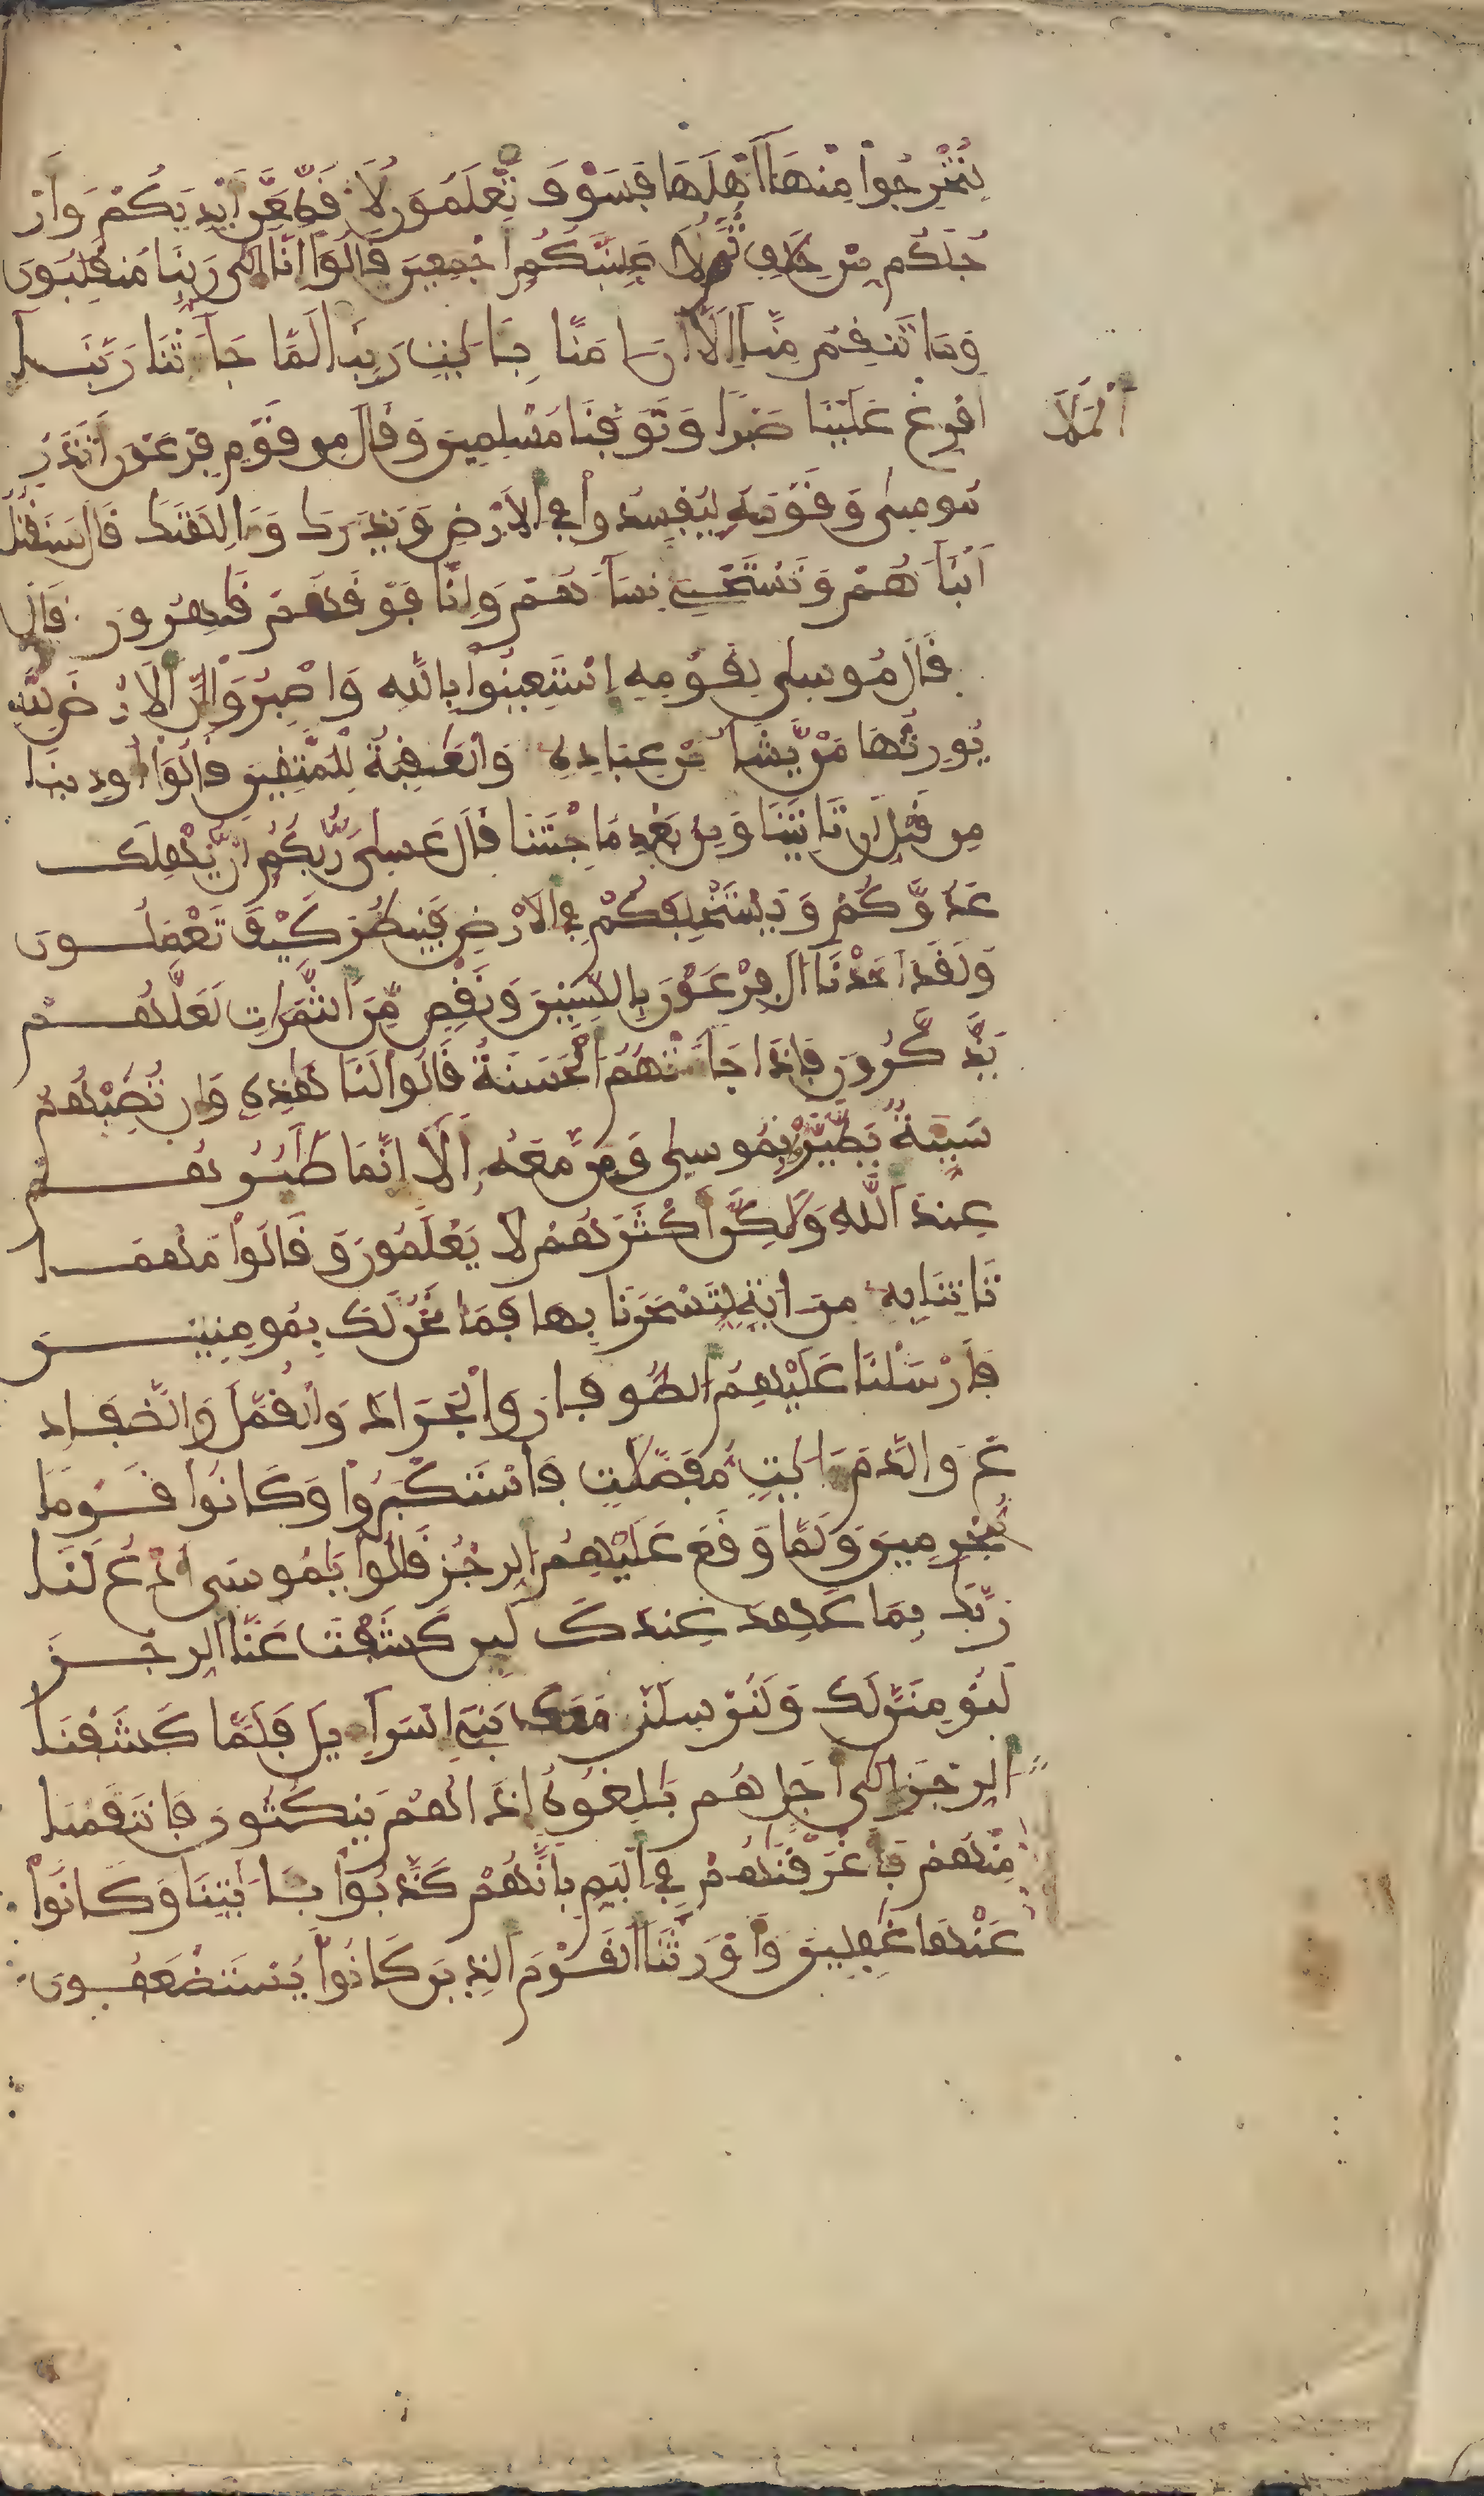 لتُخْرِجُوا مِنْهَا أَهْلَهَا فَسَوْفَ تَعْلَمُونَ لَأُقَطِّعَنَّ أَيْدِيَكُمْ وَأَرْ
جُلَكُم مِّنْ خِلَفٍ ثُمَّ لَأُصَلِّبَنَّكُمْ أَجْمَعِينَ قَالُوا إِنَّا إِلَى رَبِّنَا مُنقَلِبُونَ
وَمَا تَنقِمُ مِنَّا إِلَّا أَنْ ءَامَنَّا بِـَٔايَٰتِ رَبِّنَا لَمَّا جَآءَتْنَا رَبَّنَا
أَفْرِغْ عَلَيْنَا صَبْرًا وَتَوَفَّنَا مُسْلِمِينَ وَقَالَ مِن قَوْمِ فِرْعَوْنَ أَتَذَرُ
الْمَلَأُ
مُوسَىٰ وَقَوْمَهُ لِيُفْسِدُوا فِي الْأَرْضِ وَيَذَرَكَ وَءَالِهَتَكَ قَالَ سَنَقْتُلُ
أَبْنَآءَهُمْ وَنَسْتَحْيِ نِسَآءَهُمْ وَإِنَّا فَوْقَهُمْ قَٰهِرُونَ قَالَ
قَالَ مُوسَىٰ لِقَوْمِهِ اسْتَعِينُوا بِاللَّهِ وَاصْبِرُوا إِنَّ الْأَرْضَ لِلَّهِ
يُورِثُهَا مَنْ يَّشَآءُ مِنْ عِبَادِهِ وَالْعَٰقِبَةُ لِلْمُتَّقِينَ قَالُوا أُوذِينَا
مِن قَبْلِ أَن تَاتِيَنَا وَمِنْ بَعْدِ مَا جِئْتَنَا قَالَ عَسَىٰ رَبُّكُمْ أَنْ يُّهْلِكَ
عَدُوَّكُمْ وَيَسْتَخْلِفَكُمْ فِي الْأَرْضِ فَيَنظُرَ كَيْفَ تَعْمَلُونَ
وَلَقَدْ أَخَذْنَا ءَالَ فِرْعَوْنَ بِالسِّنِينَ وَنَقْصٍ مِّنَ الثَّمَرَٰتِ لَعَلَّهُمْ
يَذَّكَّرُونَ فَإِذَا جَآءَتْهُمُ الْحَسَنَةُ قَالُوا لَنَا هَٰذِهِ وَإِن تُصِبْهُمْ
سَيِّئَةٌ يَطَّيَّرُوا بِمُوسَىٰ وَمَن مَّعَهُ أَلَا إِنَّمَا طَٰٓئِرُهُمْ
عِندَ اللَّهِ وَلَٰكِنَّ أَكْثَرَهُمْ لَا يَعْلَمُونَ وَقَالُوا مَهْمَا
تَاتِنَا بِهِ مِنْ ءَايَةٍ لِّتَسْحَرَنَا بِهَا فَمَا نَحْنُ لَكَ بِمُومِنِينَ
فَأَرْسَلْنَا عَلَيْهِمُ الطُّوفَانَ وَالْجَرَادَ وَالْقُمَّلَ وَالضَّفَادِ
عَ وَالدَّمَ ءَايَٰتٍ مُّفَصَّلَٰتٍ فَاسْتَكْبَرُوا وَكَانُوا قَوْمًا
مُّجْرِمِينَ وَلَمَّا وَقَعَ عَلَيْهِمُ الرِّجْزُ قَالُوا يَٰمُوسَى ادْعُ لَنَا
رَبَّكَ بِمَا عَهِدَ عِندَكَ لَئِن كَشَفْتَ عَنَّا الرِّجْزَ
لَنُومِنَنَّ لَكَ وَلَنُرْسِلَنَّ مَعَكَ بَنِي إِسْرَآءِيلَ فَلَمَّا كَشَفْنَا
الرِّجْزَ إِلَىٰ أَجَلٍ هُم بَٰلِغُوهُ إِذَا هُمْ يَنكُثُونَ فَانتَقَمْنَا
مِنْهُمْ فَأَغْرَقْنَٰهُمْ فِي الْيَمِّ بِأَنَّهُمْ كَذَّبُوا بِـَٔايَٰتِنَا وَكَانُوا
عَنْهَا غَٰفِلِينَ وَأَوْرَثْنَا الْقَوْمَ الَّذِينَ كَانُوا يُسْتَضْعَفُونَ